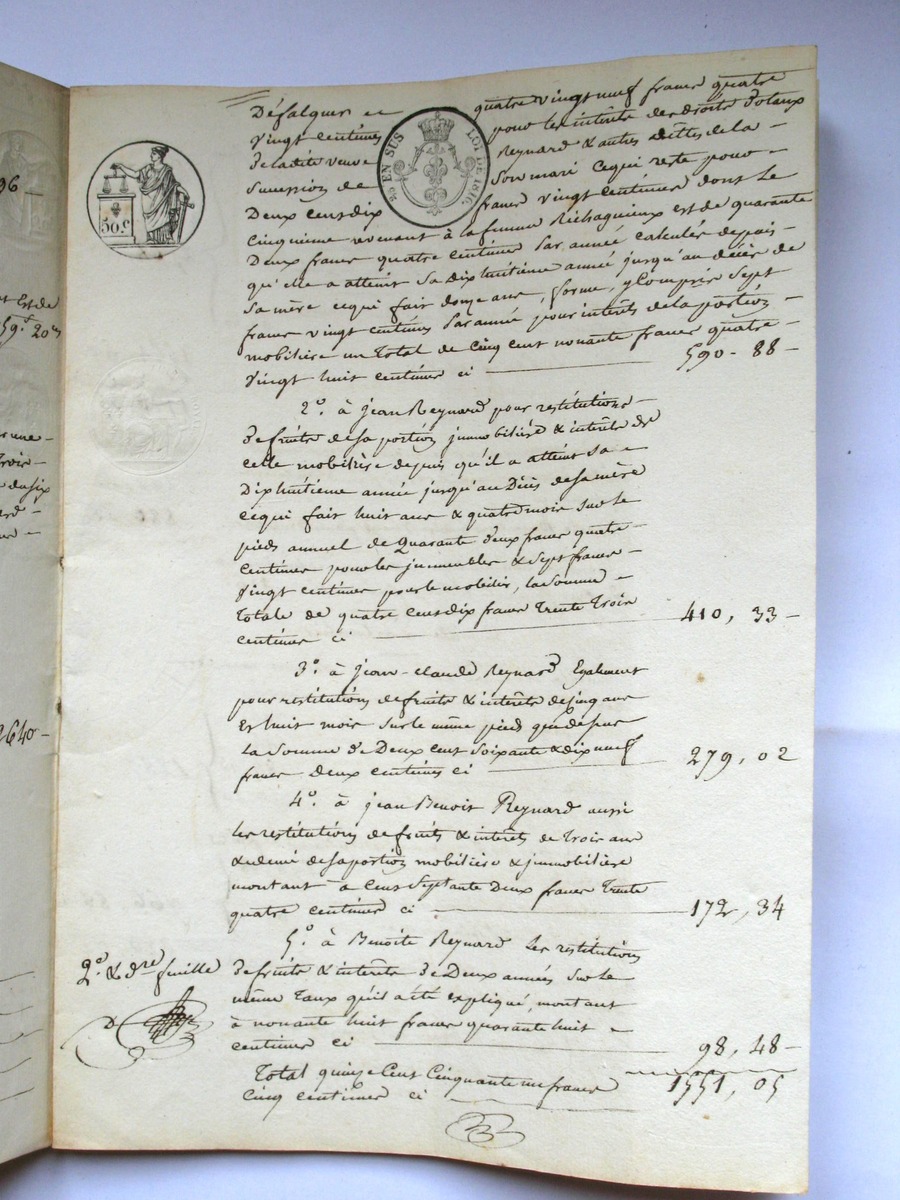 Défalquer et quatre vingt neuf francs quatre
vingt centimes pour les intérêts des droits dotaux
de ladite veuve Reynard & autres dettes de la
Sucession de Son mari ce qui reste pour
Deux cent dix francs vingt centimes dont le
Cinquième revenant à la femme Richagneux est de quarante
Deux francs quatre centimes par année calculés depuis
qu'elle a atteint Sa dix huitième année jusqu'au décès de
Sa mère ce qui fait douze ans, forme, y Compris Sept
francs vingt centimes par année pour intérêts de la portion
mobilière un Total de Cinq cent nonante francs quatre
Vingt huit centimes ci 590 - 88 -
2.° à jean Reynard pour restitutions
de fruits de sa portion jmmobilière & intérêts de
celle mobilière depuis qu'il a atteint sa
Dix huitième année jusqu'au Décès de sa mère
ce qui fait huit ans & quatre mois sur le
pieds annuel de Quarante deux francs quatre
Centimes pour les jmmeubles & Sept francs
Vingt centimes pour le mobilier, la Somme
Totale de quatre cent dix francs Trente Trois
centimes ci 410, 33 -
3.° à jean-claude Reynard Egalement
pour restitutions de fruits & intérêts de cinq ans
Et huit mois sur le même pied que dessus
la Somme de Deux cent Soixante & dix neuf
francs deux centimes ci 279, 02
4.° à jean Benoit Reynard aussi
les restitutions de fruits & intérêts de Trois ans
& demi de sa portion mobilière & jmmobilière
montant à Cent Septante Deux francs Trente
quatre centimes ci 172, 34
5.° à Benoite Reynard les restitutions
de fruits & intérêts de Deux années Sur le
même Taux qu'il a été expliqué, montant
à nonante huit francs quarante huit
centimes ci 98, 48 -
Total quinze Cent Cinquante un francs
Cinq centimes ci 1551, 05
2.e & d.re feuille
EN SUS LOI DE 1816
50 c
96
est de
59.f 20 c
Trois
2640 -